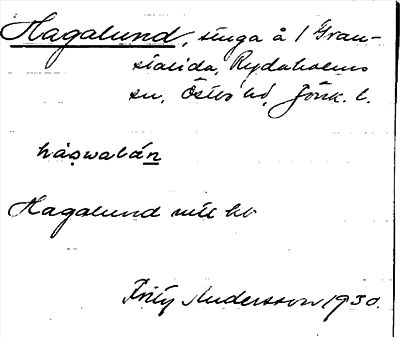 Hagalund, stuga å 1 Gran-
siasida, Rydaholms
sn, Östbo hd, Jönk. l.
Hagalund
Fritz Andersson 1930.